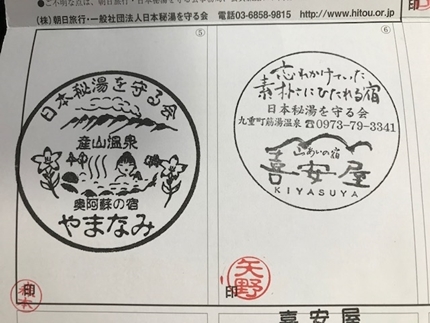 ●ご不明な点は、朝日旅行・日本秘湯を守る会
(株)朝日旅行・一般社団法人日本秘湯を守る会 電話03-6858-9815 http://www.hitou.or.jp
⑤
日本秘湯を守る会
産山温泉
奥阿蘇の宿
やまなみ
印
⑥
忘れかけていた
素朴さにひたれる宿
日本秘湯を守る会
九重町筋湯温泉 ☎0973-79-3341
山あいの宿
喜安屋
KIYASUYA
印
矢野
喜安屋